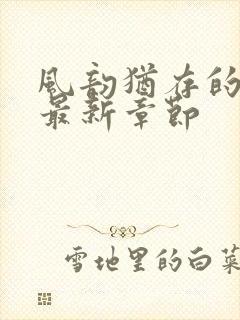 风韵犹存的
最新章节
雪地里的白菜